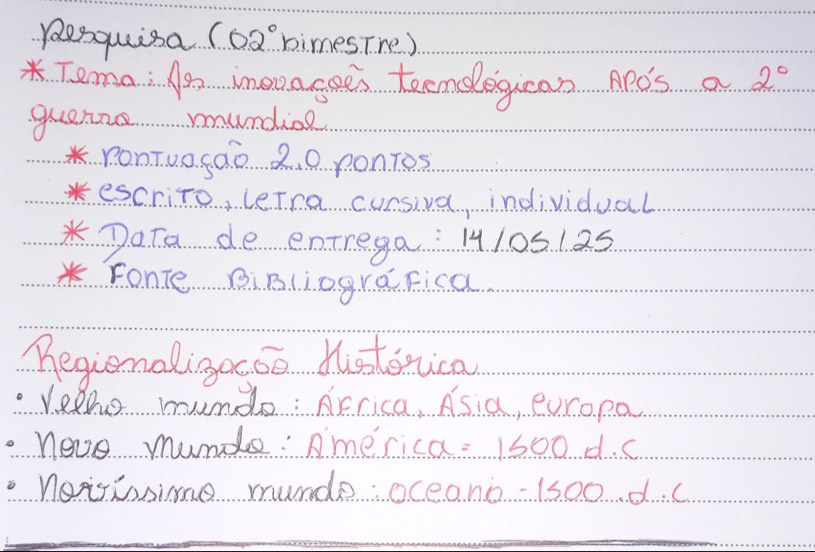 Pesquisa (02° bimestre)
* Tema: As inovações tecnológicas após a 2°
guerra mundial
* Pontuação 2.0 pontos
* escrito, letra cursiva, individual
* Data de entrega: 14/05/25
* Fonte Bibliográfica.
Regionalização Histórica
• Velho mundo: África, Ásia, europa
• Novo Mundo: América = 1500 d.c
• Novíssimo mundo: oceano - 1500.d.c